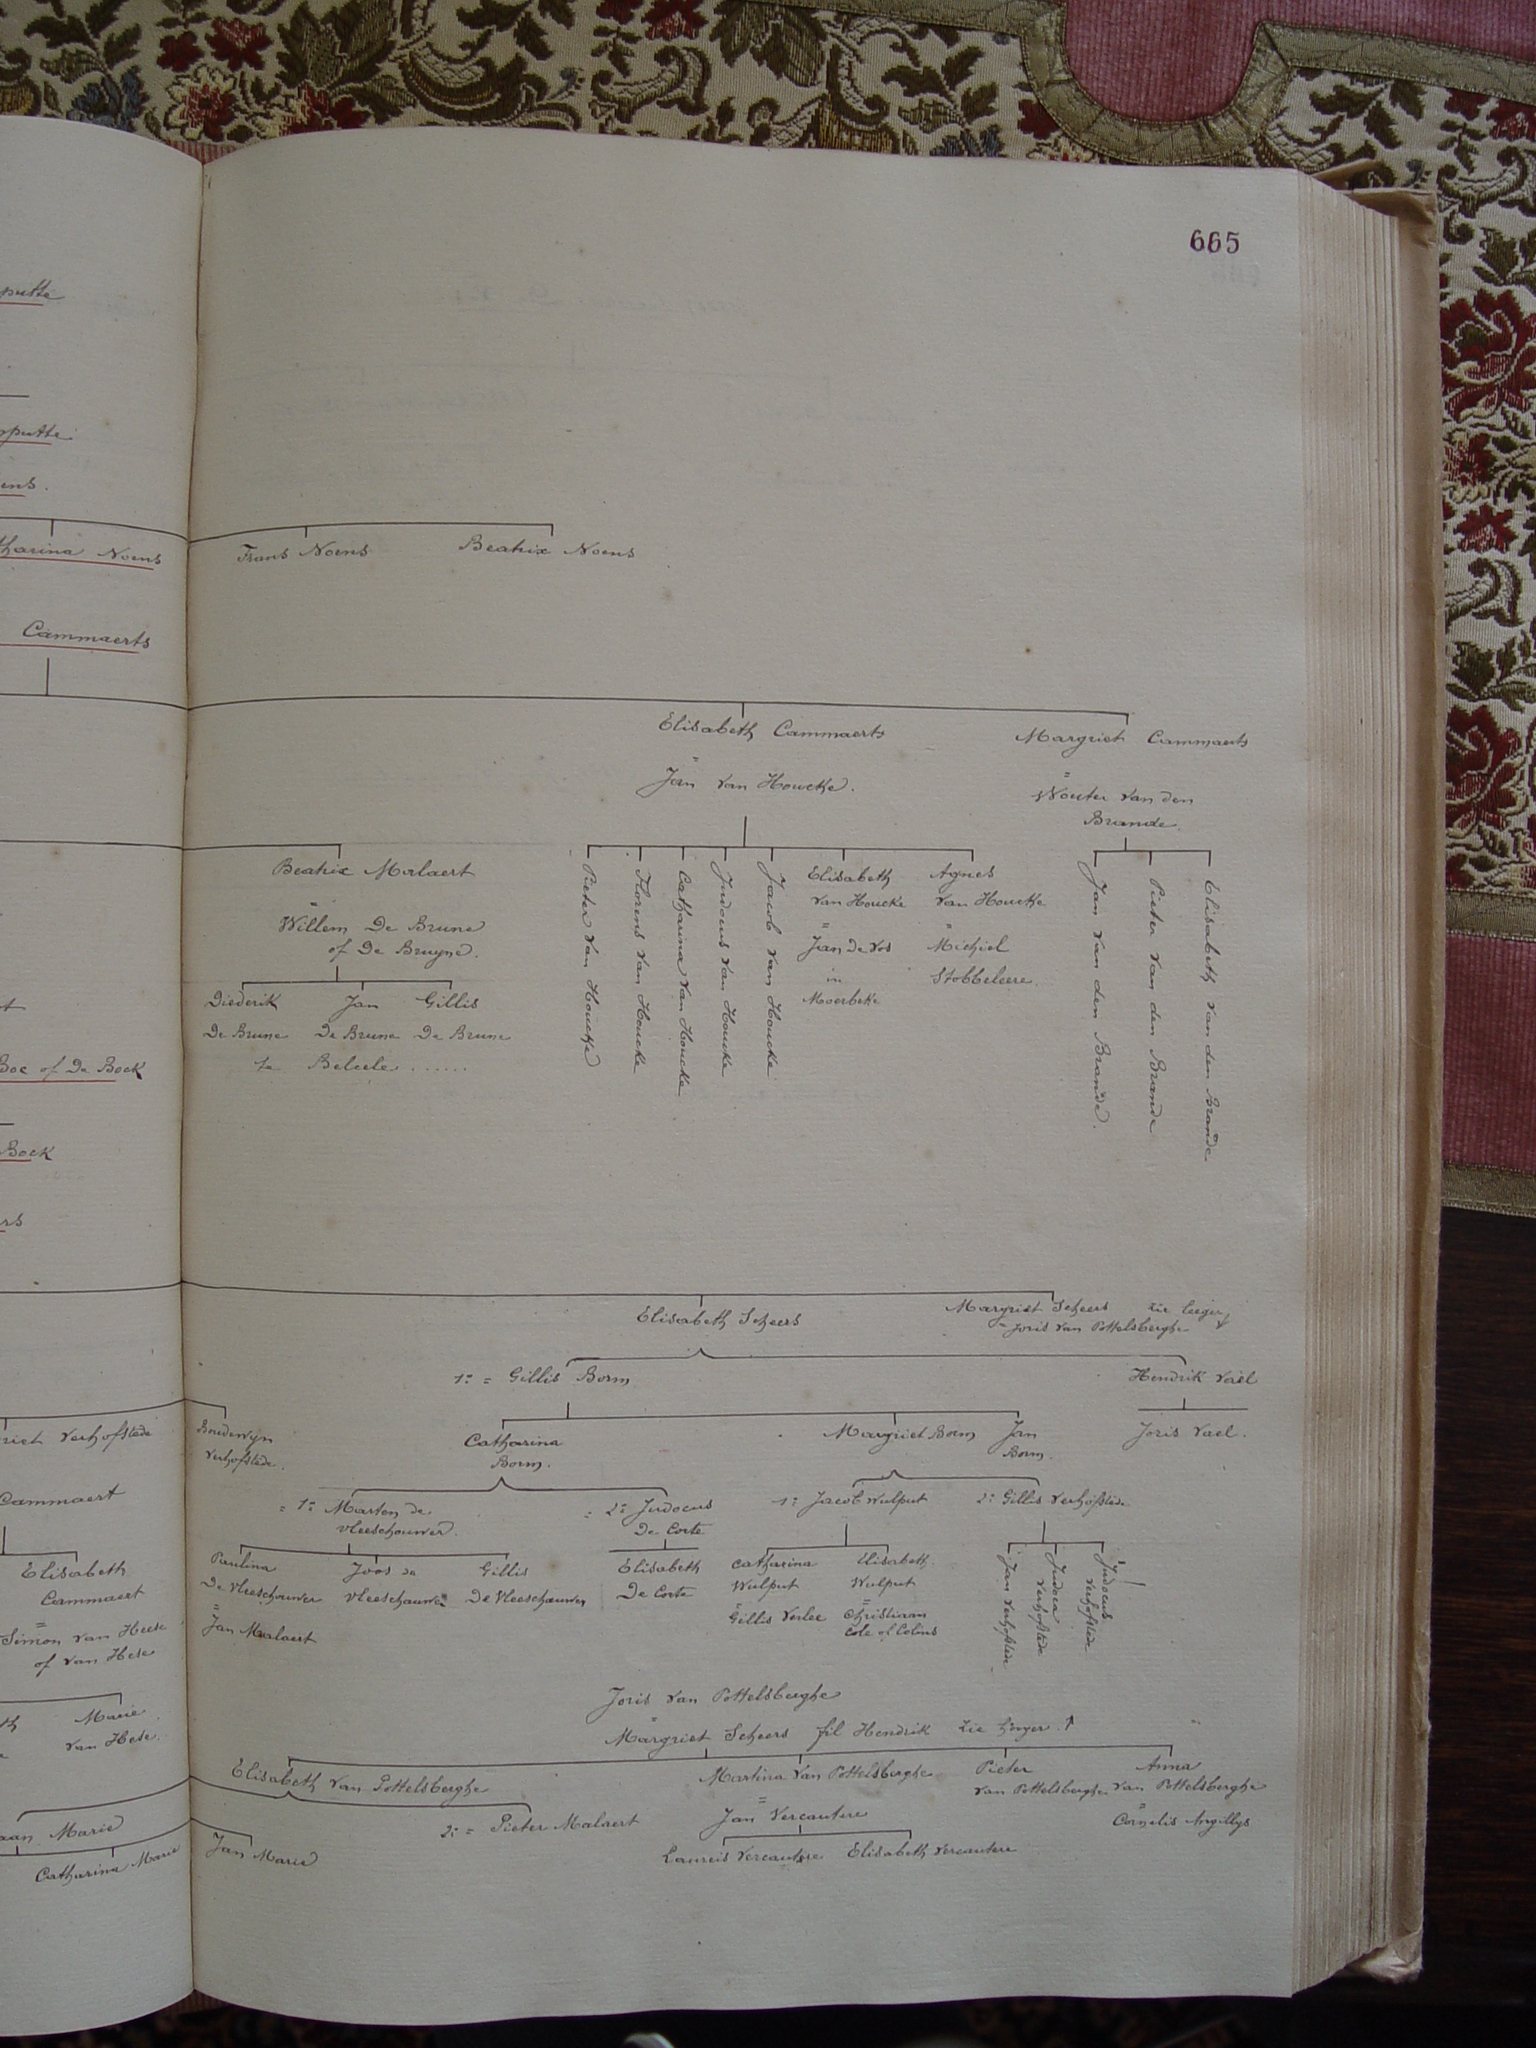 665
putte
putte
ens.
tharina Noens
Frans Noens
Beatrix Noens
Cammaerts
Elisabeth Cammaerts
Margriet Cammaerts
=
Jan van Houcke.
=
Wouter van den
Brande.
Beatrix Malaert
=
Willem De Brune
of De Bruyne.
Diederik
De Brune
Jan
De Brune
Gillis
De Brune
te Belcele.......
Pieter van Houcke
Florens van Houcke
Catharina van Houcke
Judocus van Houcke
Jacob van Houcke
Elisabeth
van Houcke
=
Jan de Vos
in
Moerbeke
Agnes
van Houcke
=
Michiel
Stobbeleere.
Jan van den Brande.
Pieter van den Brande
Elisabeth van den Brande
Boc of De Bock
Bock
ers
Elisabeth Scheers
Margriet Scheers zie leeger
= Joris van Pottelsberghe
1: = Gillis Borm
Hendrik Vael
Joris Vael.
riet Verhofstede
Boudewyn
Verhofstede.
Catharina
Borm.
Margriet Borm
Jan
Borm.
= 1: Marten de
Vleeschouwer.
= 2: Judocus
De Corte
1: Jacob Wulput
2: Gillis Verhofstede
Cammaert
Elisabeth
Cammaert
=
Simon van Heese
of van Hese
Paulina
De Vleeschouwer
=
Jan Malaert
Joos de
Vleeschauwer
Gillis
De Vleeschauwer
Elisabeth
De Corte
Catharina
Wulput
=
Gillis Verlee
Elisabeth
Wulput
=
Christiaan
Cole of Colins
Jan Verhofstede
Judoca
Verhofstede
Judocus
Verhofstede
Marie
van Hese.
Joris van Pottelsberghe
=
Margriet Scheers fil Hendrik zie hooger
Elisabeth van Pottelsberghe
Martina van Pottelsberghe
Pieter
van Pottelsberghe
Anna
van Pottelsberghe
=
Cornelis Angillys
2: = Pieter Malaert
=
Jan Vercautere
Laureis Vercautere
Elisabeth Vercautere
aan Marie
Catharina Marie
Jan Marie